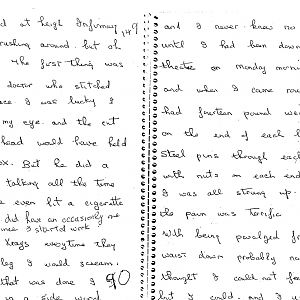 d at Leigh Infirmary, 149
rushing around. but oh
the first thing was
doctor who stitched
ce I was lucky I
my eye. and the cut
head would have held
ox. But he did a
talking all the time
e even lit a cigarette
did have an occasionly one
since I started work.
Xrays everytime they
leg I would scream.
that was done I go
in a side ward
and I never knew no
until I had been down
theatre on monday morni
and when I came roun
had fourteen pound wei
on the end of each l
steel pins through each
with nuts on each end
I was all strung up.
the pain was terrific
With being paralyzed fr
waist down probably no
thought I could not fe
but I could. and I
90